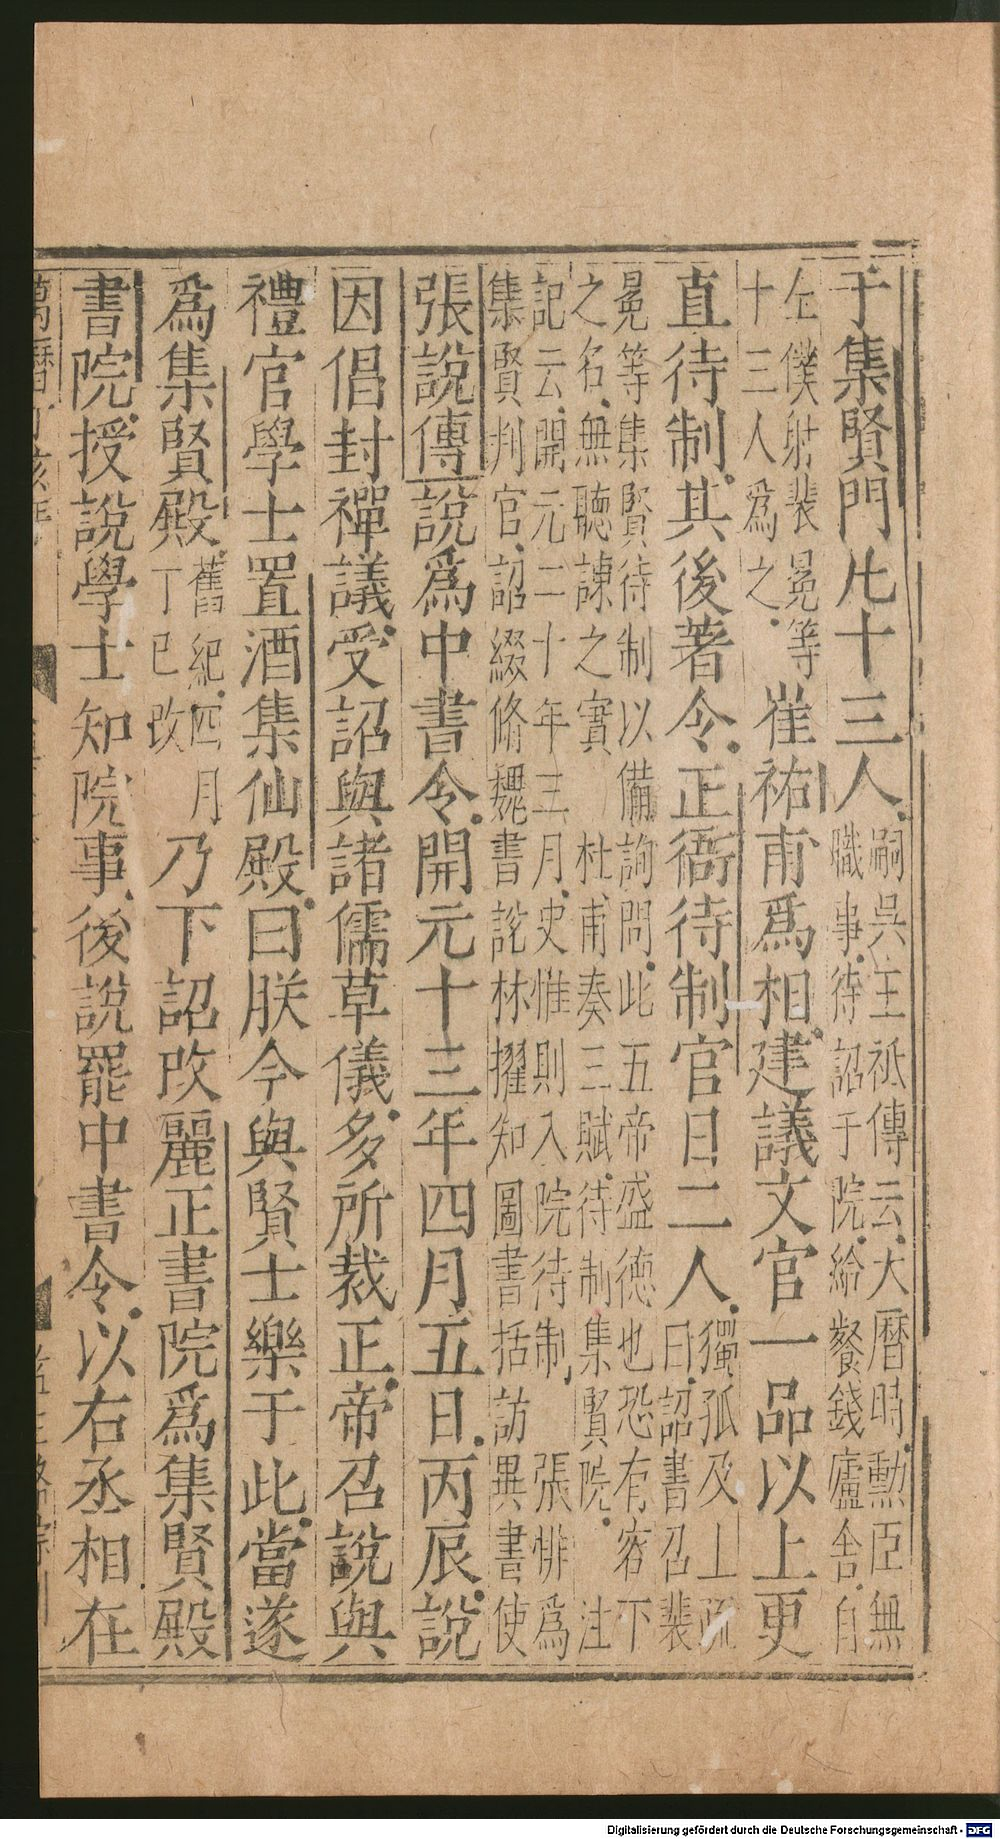 于集賢門凡十三人嗣吳王祗傳云大曆時勳臣無職事待詔于院給餐錢廬舍自
左僕射裴冕等十三人爲之崔祐甫爲相建議文官一品以上更
直待制其後著令正衙待制官日二人獨孤及上疏曰詔書召裴
冕等集賢待制以備詢問此五帝盛德也恐有容下之名無聽諫之實杜甫奏三賦待制集賢院注
記云開元二十年三月史惟則入院待制張悱爲集賢判官詔綴脩魏書說林擢知圖書括訪異書使
張說傳說爲中書令開元十三年四月五日丙辰說
因倡封禪議受詔與諸儒草儀多所裁正帝召說與
禮官學士置酒集仙殿曰朕今與賢士樂于此當遂
爲集賢殿舊紀四月丁巳改乃下詔改麗正書院爲集賢殿
書院授說學士知院事後說罷中書令以右丞相在
萬曆
Digitalisierung gefördert durch die Deutsche Forschungsgemeinschaft - DFG